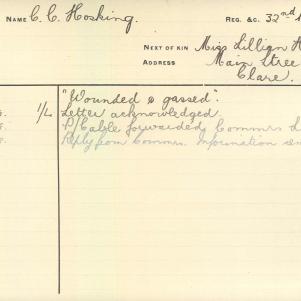 NAME C. C. Hosking. REG. &C. 32nd
NEXT OF KIN Miss Lillian H
ADDRESS Main Stree
Clare.
"Wounded & gassed".
1/L Letter acknowledged.
P/Cable forwarded Commrs L
Reply from Commrs. Information sen